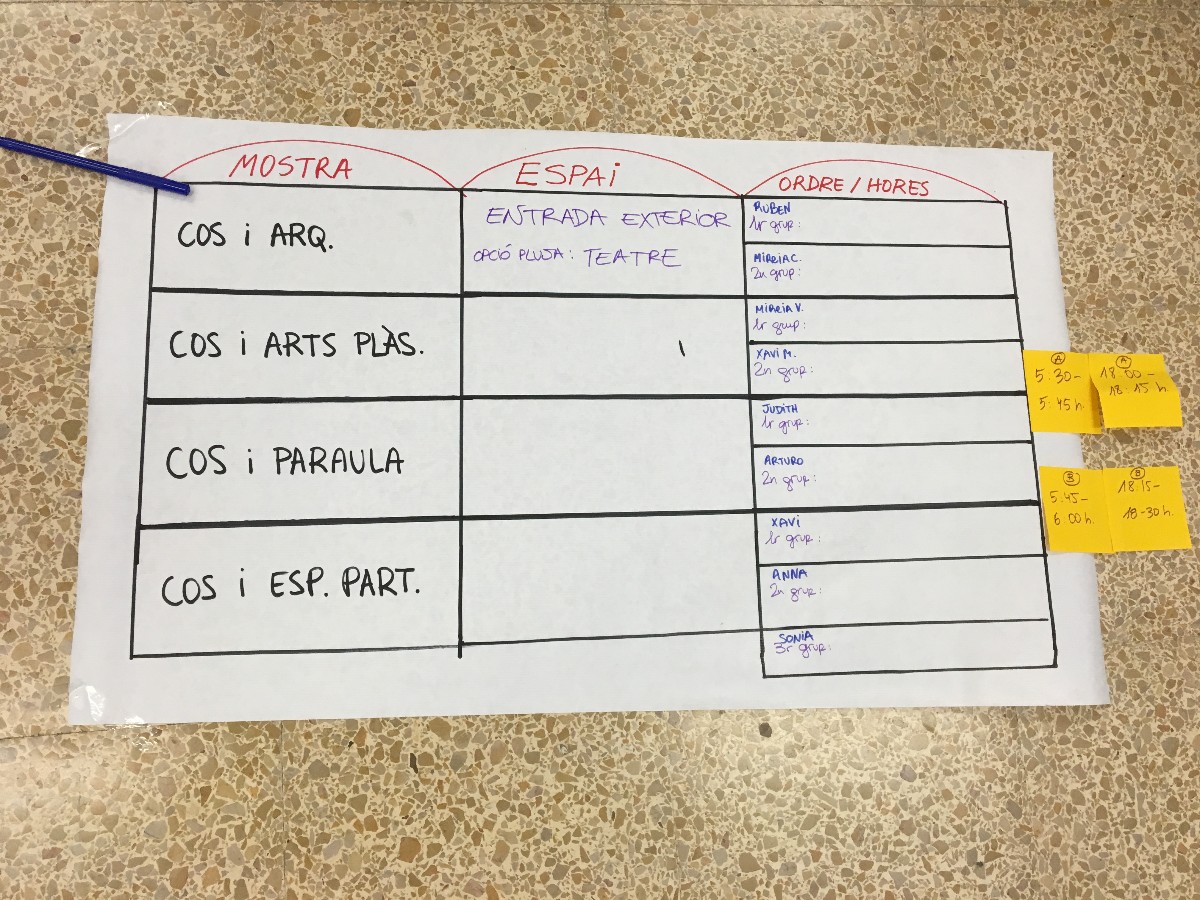 MOSTRA
ESPAi
ORDRE / HORES
COS i ARQ.
ENTRADA EXTERIOR
OPCIÓ PLUJA: TEATRE
RUBEN
1r grup:
MIREIA C.
2n grup:
COS i ARTS PLÀS.
MIREIA V.
1r grup:
XAVI M.
2n grup:
COS i PARAULA
JUDITH
1r grup:
ARTURO
2n grup:
COS i ESP. PART.
XAVI
1r grup:
ANNA
2n grup:
SONIA
3r grup:
A
5:30-
5:45 h.
A
18:00-
18:15 h.
B
5:45-
6:00 h.
B
18:15-
18-30 h.